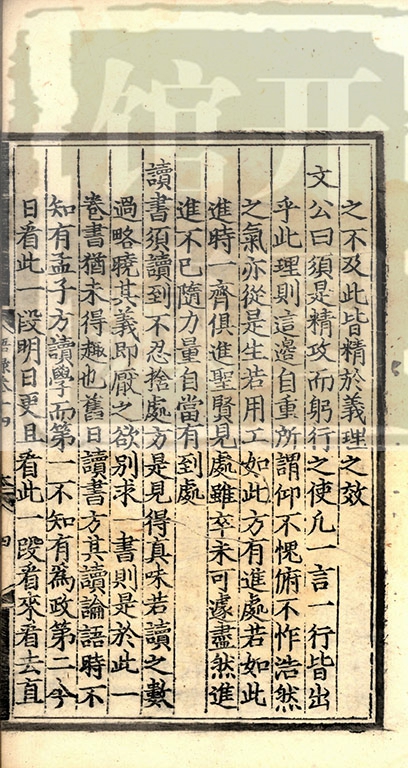 之不及此皆精於義理之效
文公曰須是精攻而躬行之使凡一言一行皆出
乎此理則這邉自重所謂仰不愧俯不怍浩然
之氣亦從是生若用工如此方有進處若如此
進時一齊俱進聖賢見處雖卒未可遽盡然進
進不已隨力量自當有到處
讀書須讀到不忍捨處方是見得真味若讀之數
過略曉其義即厭之欲別求一書則是於此一
卷書猶未得趣也舊日讀書方其讀論語時不
知有孟子方讀學而第一不知有爲政第二今
日看此一段明日更且看此一段看來看去直
四
开
馆